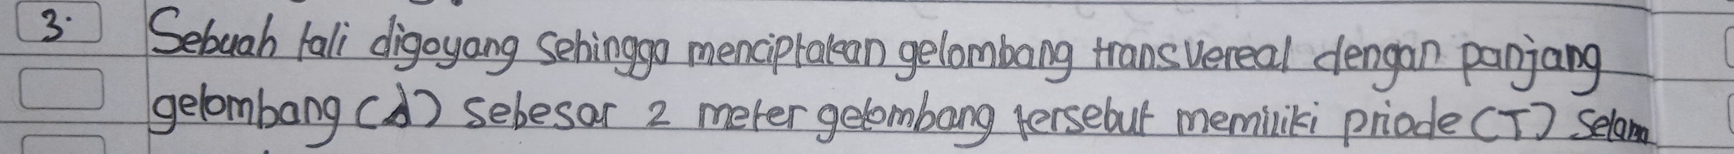 3. Sebuah tali digoyang sehingga menciptakan gelombang transvereal dengan panjang
gelombang (λ) sebesar 2 meter gelombang tersebut memiliki priode (T) selama